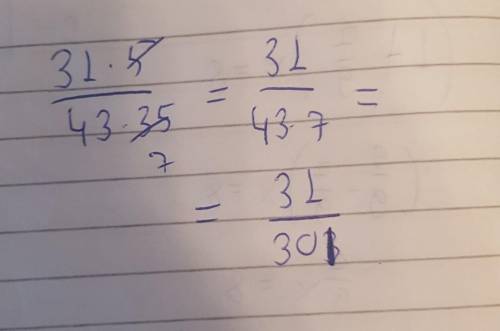 31·5/43·35 7 = 31/43·7 =
= 31/301